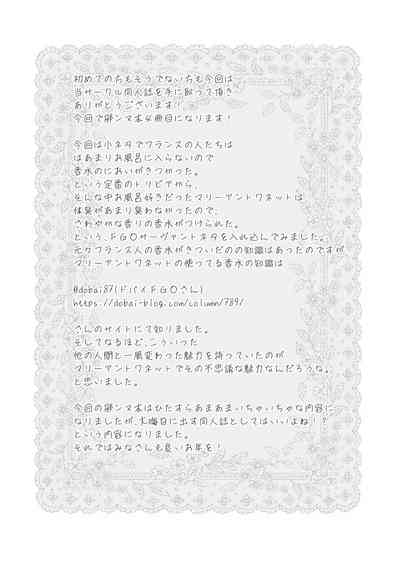 初めての方もそうでない方も今回は
当サークル同人誌を手に取って頂き
ありがとうございます!
今回で獅ンヌ本4冊目になります!
今回は小ネタでフランスの人たちは
はあまりお風呂に入らないので
香水のにおいがきつかった。
という定番のトリビアから、
そんな中お風呂好きだったマリーアントワネットは
体臭があまり臭わなかったので、
さわやかな香りの香水がつけられた。
という、FGOサーヴァントネタを入れ込んでみました。
元々フランス人の香水がきついだのの知識はあったのですが
マリーアントワネットの使ってる香水の知識は
@dobai87(ドバイFGOさん)
https://dobai-blog.com/column/789/
さんのサイトにて知りました。
そしてなるほど、こういった
他の人間と一風変わった魅力を持っていたのが
マリーアントワネットでその不思議な魅力なんだろうな。
と思いました。
今回の獅ンヌ本はひたすらあまあまいちゃいちゃな内容に
なりましたが、末に出す同人誌としてはいいよね!?
という内容になりました。
それではみなさんも良いお年を!